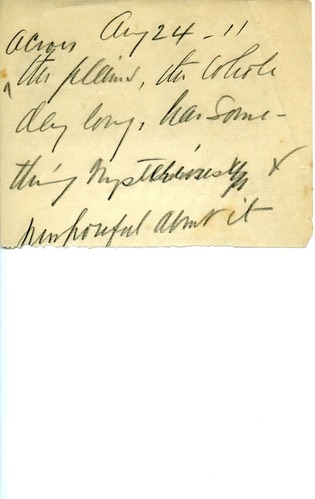 across Aug 24 - 11
^ the plains, the whole
day long, has some-
thing mysterious &
purposeful about it